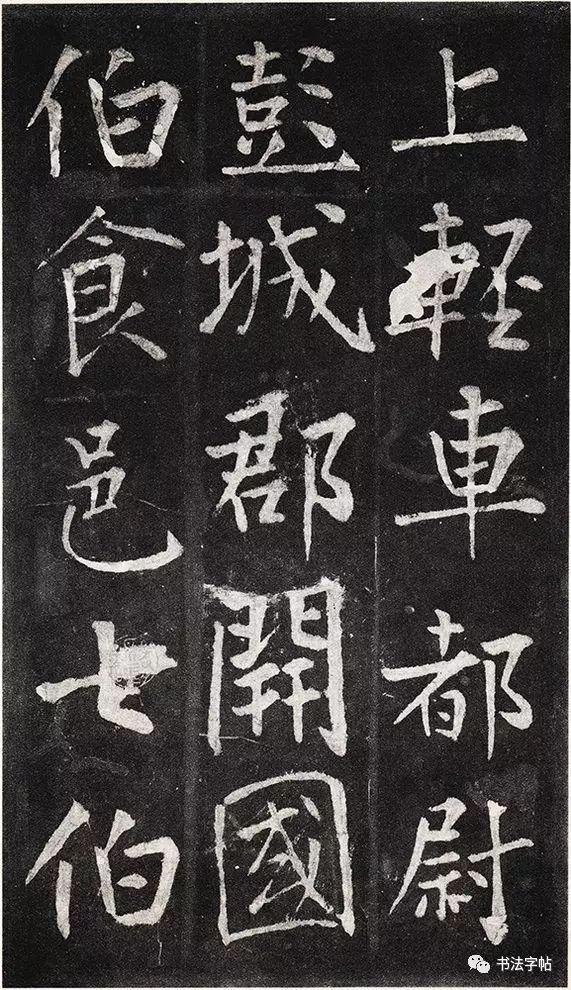 上輕車都尉
彭城郡開國
伯食邑七伯
书法字帖